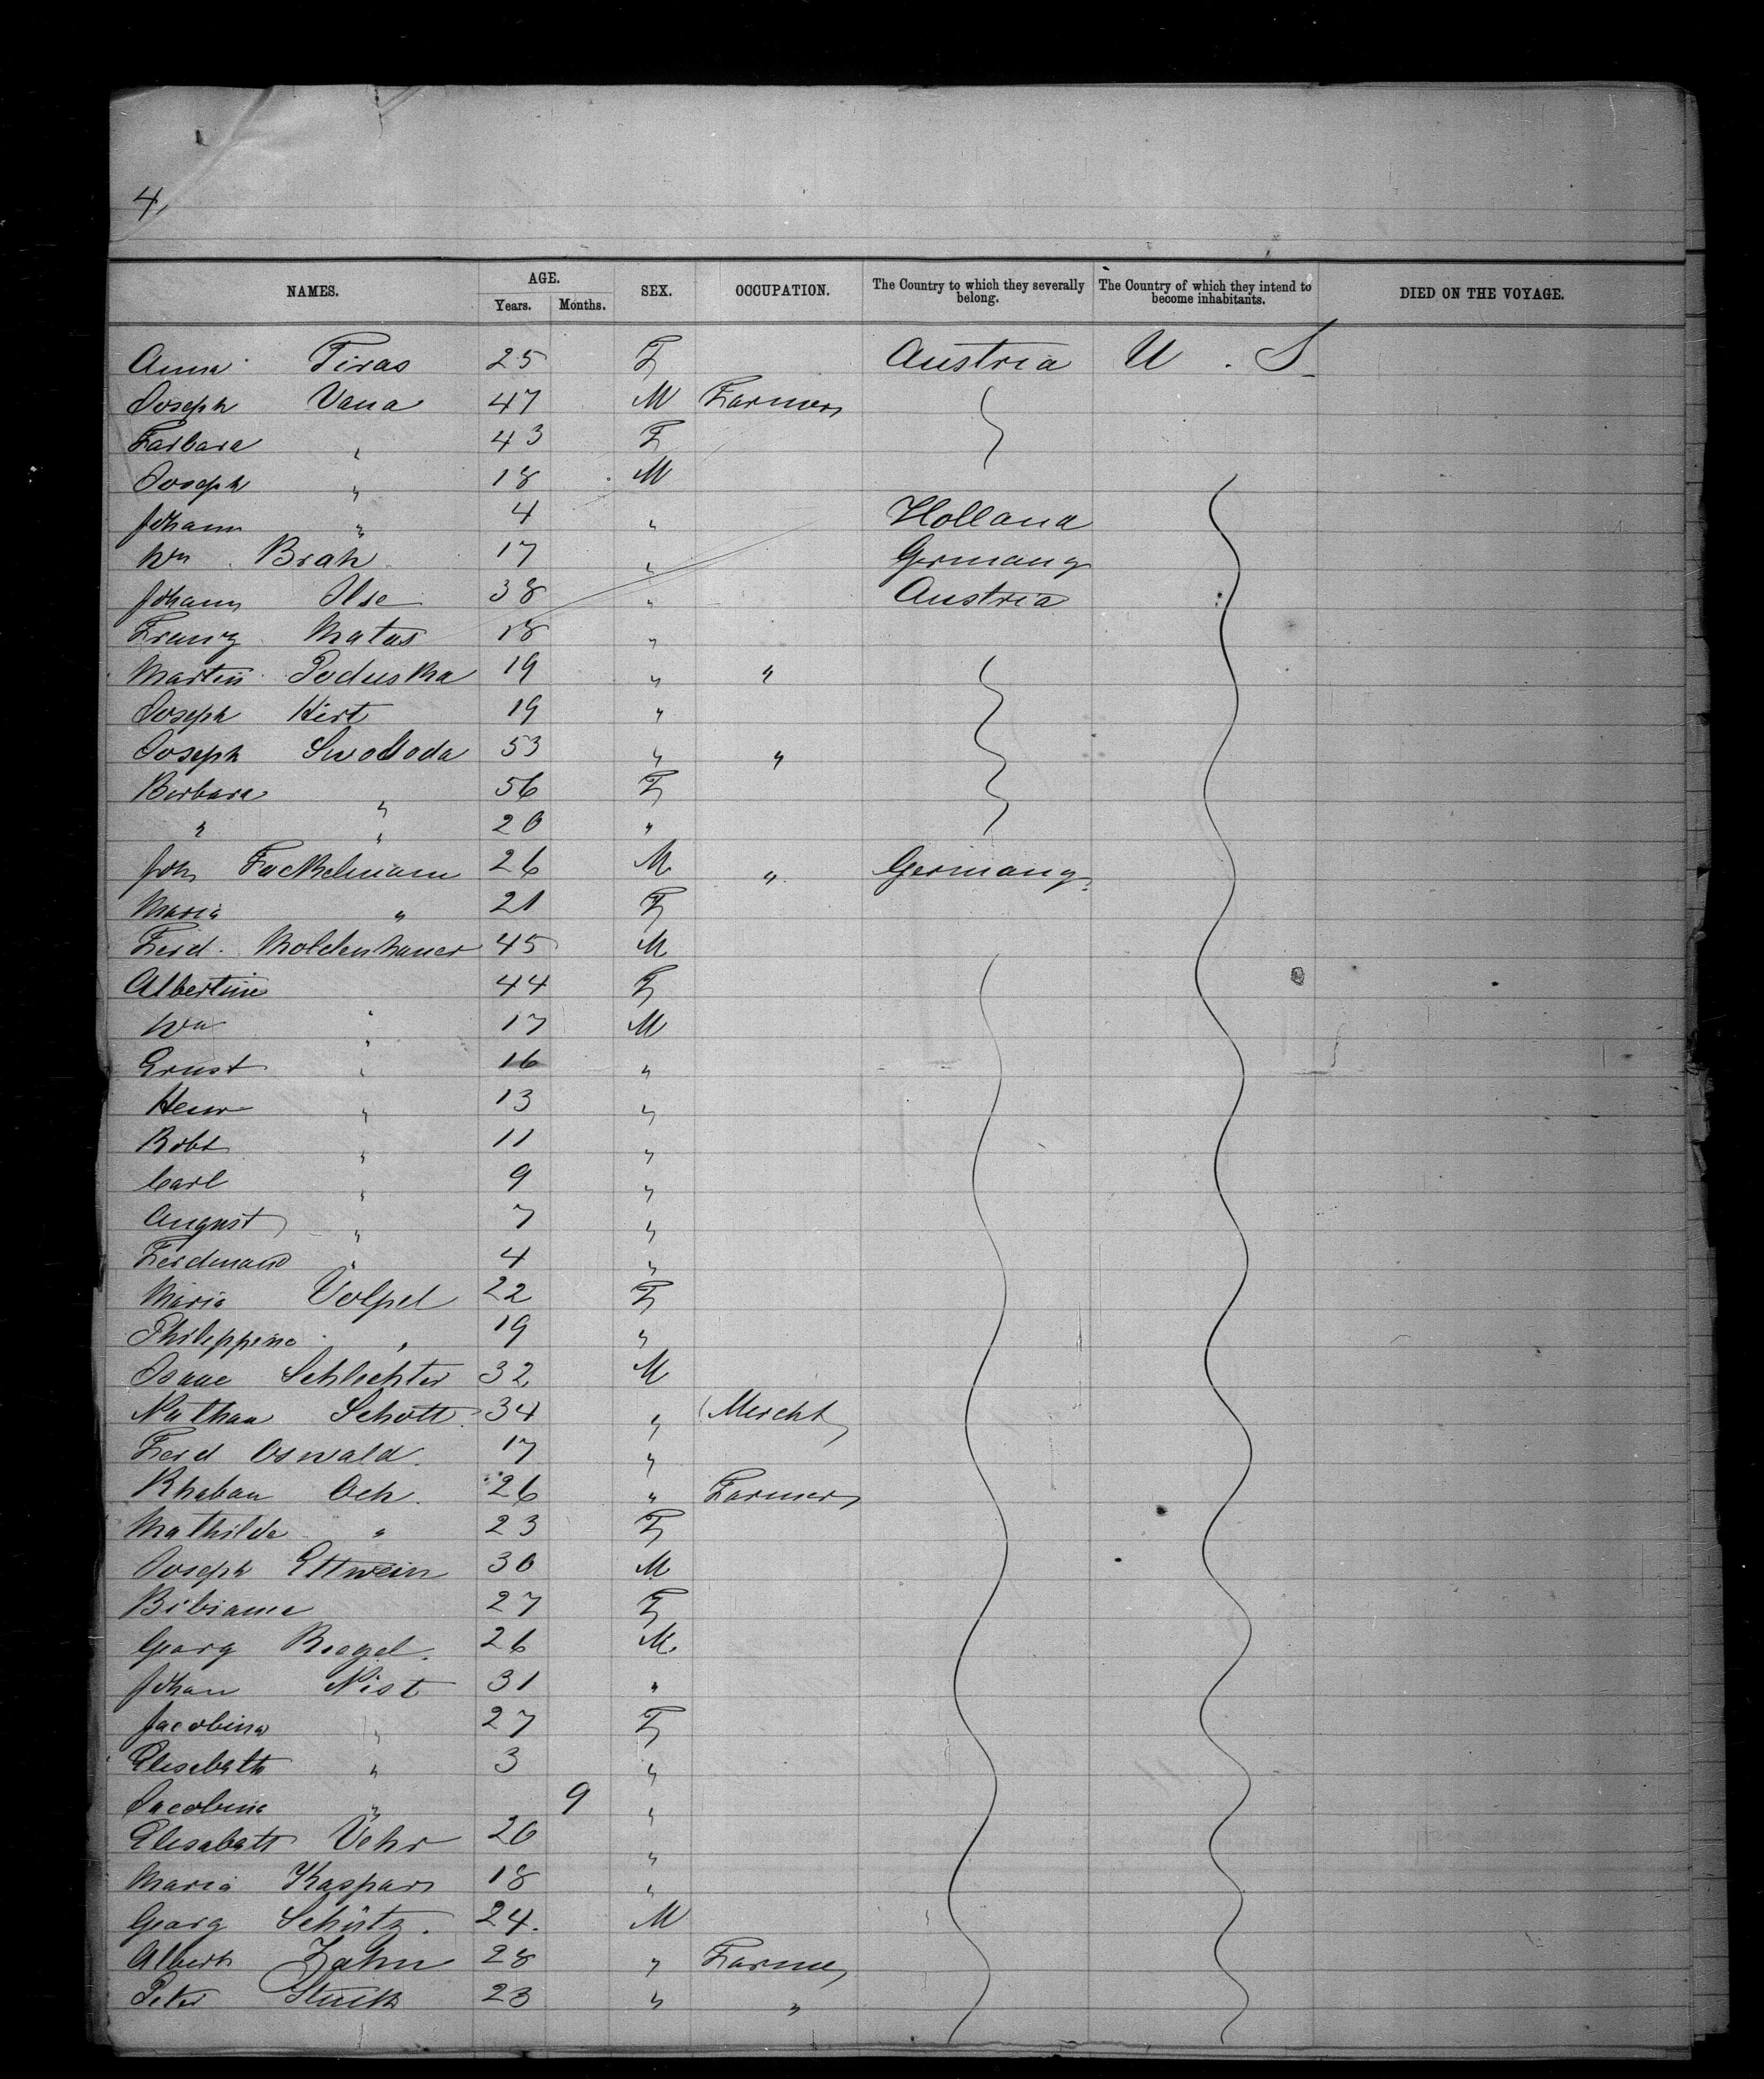 4
NAMES. AGE. SEX. OCCUPATION. The Country to which they severally belong. The Country of which they intend to become inhabitants. DIED ON THE VOYAGE.
Years. Months.
Anna Tiras 25 F Austria U. S.
Joseph Vana 47 M Farmer
Barbara " 43 F
Joseph " 18 M
Johann " 4 " Holland
Wm Brah 17 " Germany
Johann Ilse 38 " Austria
Franz Matas 18 "
Martin Poduska 19 " "
Joseph Hirt 19 "
Joseph Swoboda 53 " "
Barbara " 56 F
" " 20 "
Joh Fackelmann 26 M " Germany
Maria " 21 F
Ferd. Moldenhauer 45 M
Albertine " 44 F
Wm " 17 M
Ernst " 16 "
Henr " 13 "
Robt " 11 "
Carl " 9 "
August " 7 "
Ferdinand " 4 "
Maria Volpel 22 F
Philippina " 19 "
Isaac Schlechter 32 M
Nathan Schott 34 " Mercht
Ferd Oswald 17 "
Rhaban Och 26 " Farmer
Mathilde " 23 F
Joseph Ettwein 30 M
Bibiana 27 F
Georg Riegel 26 M
Johan Nist 31 "
Jacobina " 27 F
Elisabath " 3 "
Jacobina " 9 "
Elisabath Vehr 20 "
Maria Kaspar 18 "
Georg Schütz 24. M
Albert Zahn 28 " Farmer
Peter Stuck 23 " "